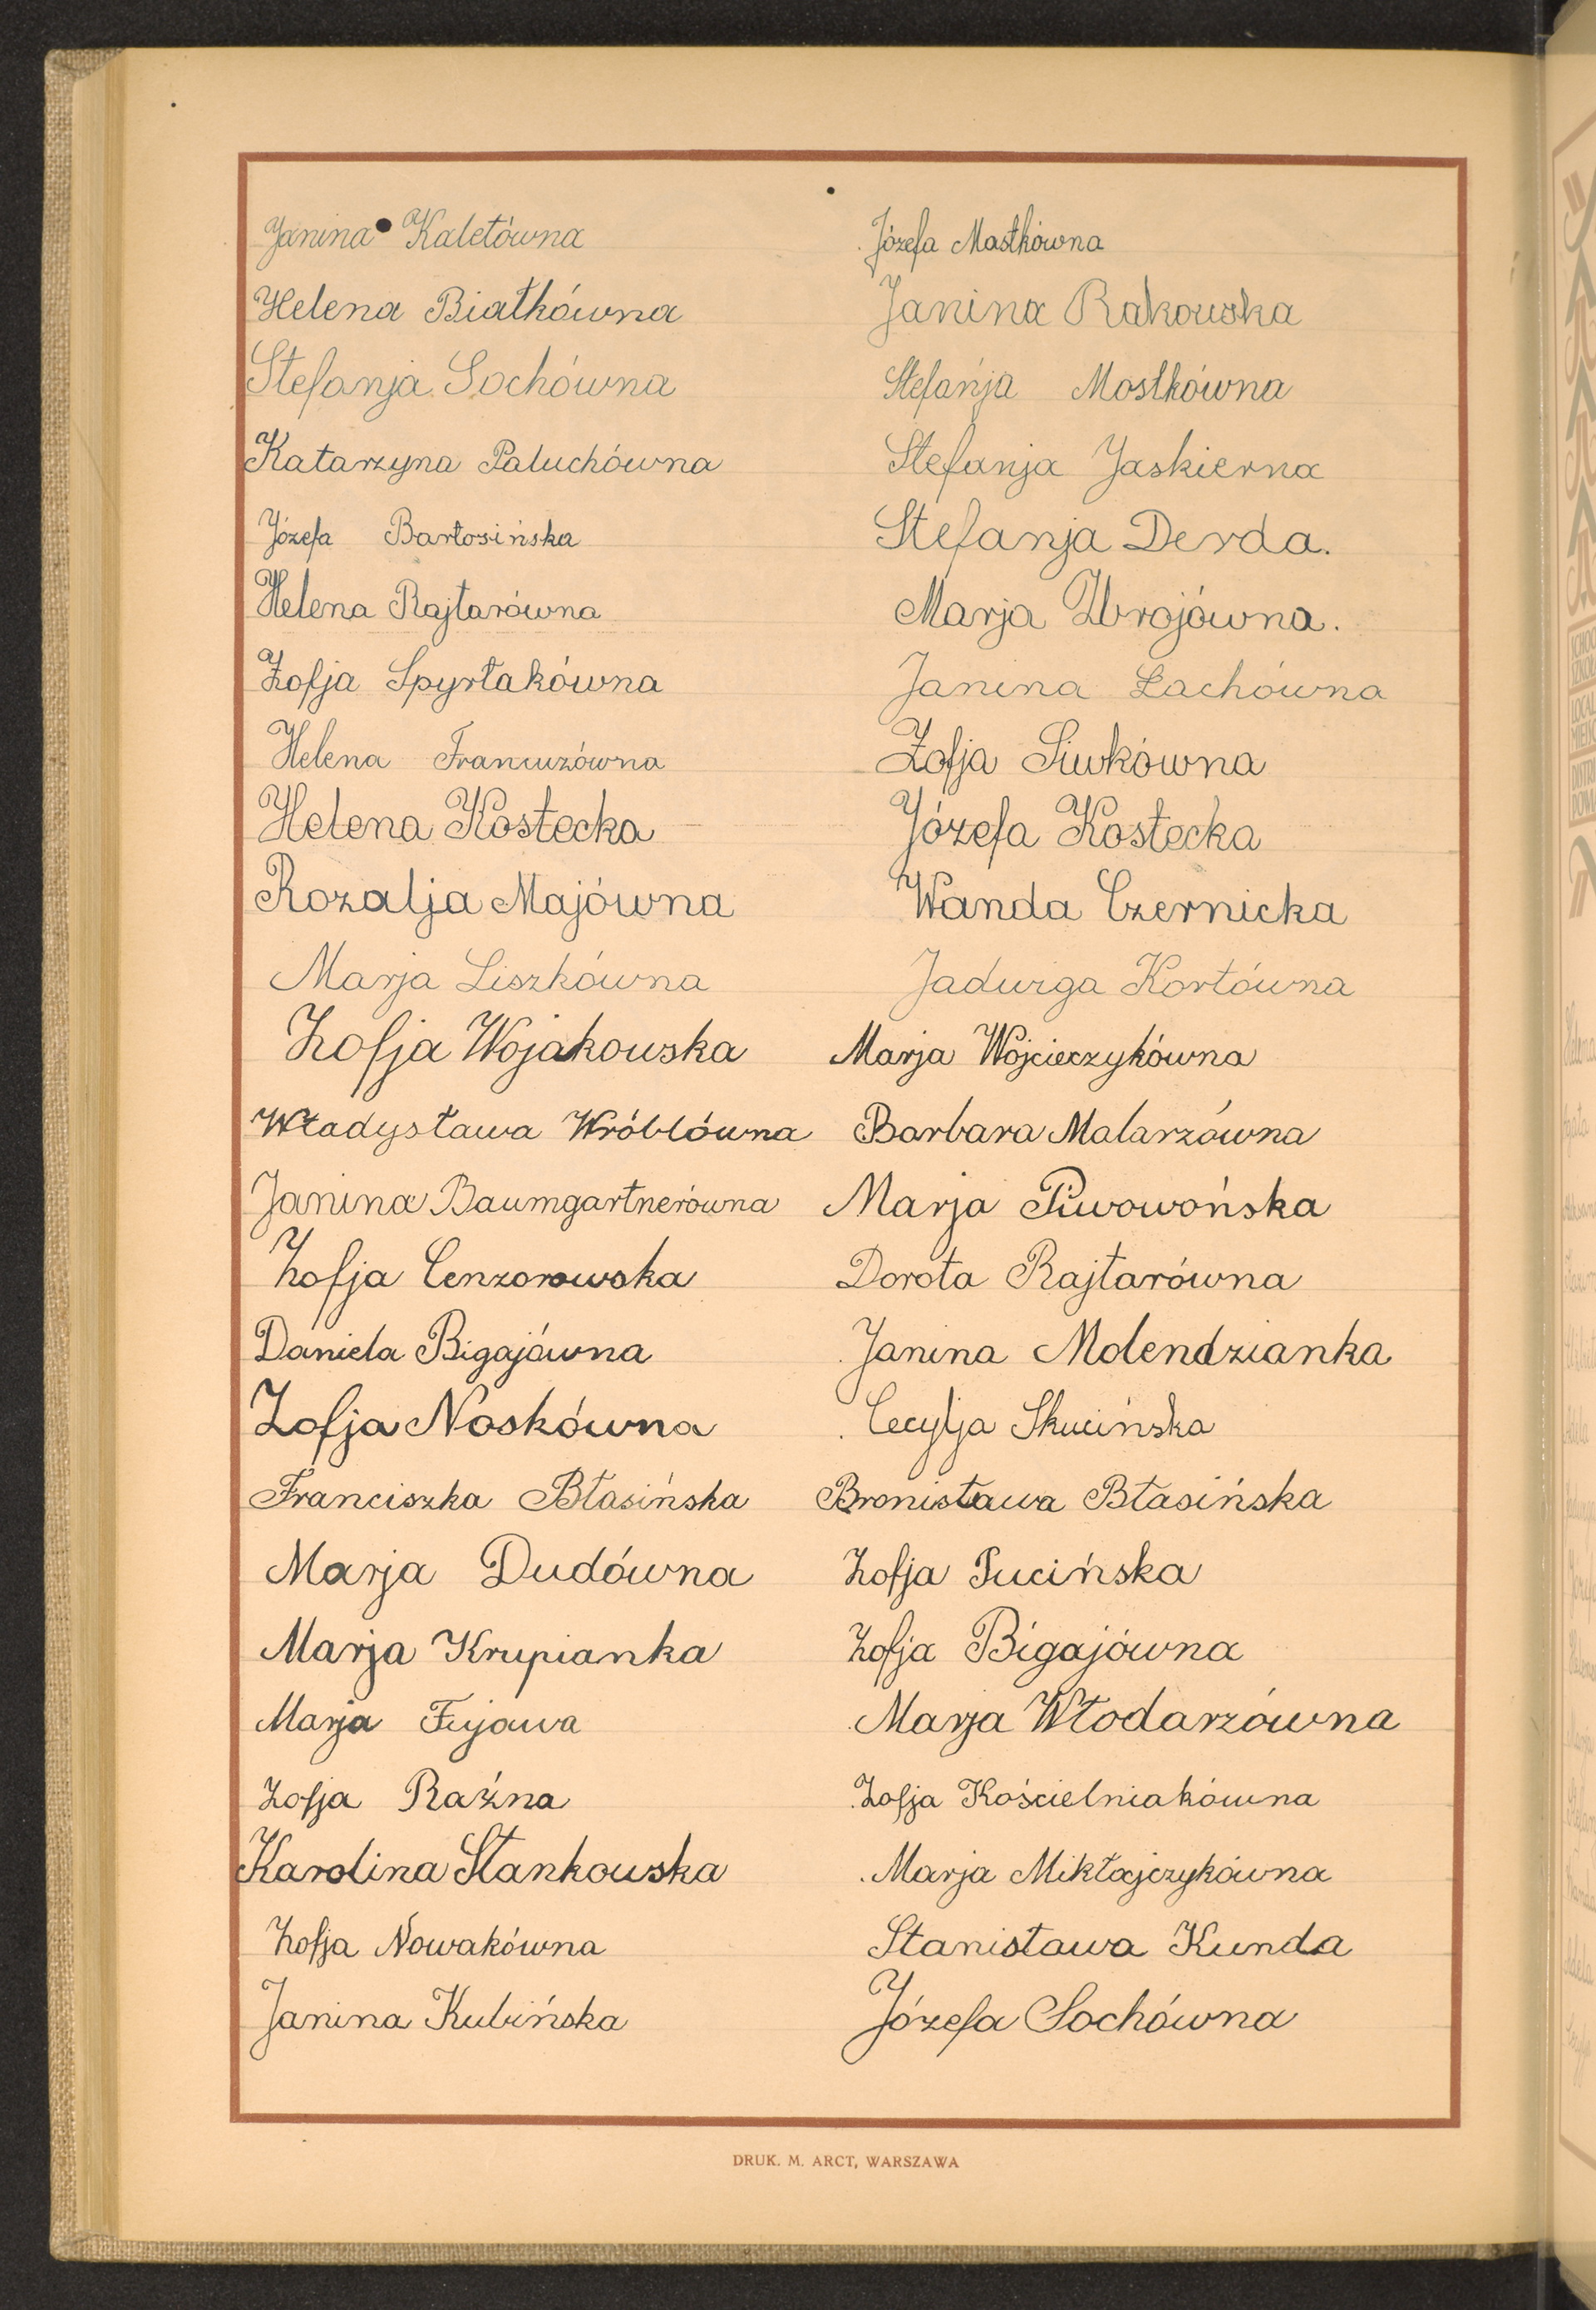 Janina Kaletówna
Helena Białkówna
Stefanja Sochówna
Katarzyna Paluchówna
Józefa Bartosińska
Helena Rajtarówna
Zofja Spyrłakówna
Helena Francuzówna
Helena Kostecka
Rozalja Majówna
Marja Liszkówna
Zofja Wojakowska
Władysława Wróblówna
Janina Baumgartnerówna
Zofja Cenzorowska
Daniela Bigajówna
Zofja Noskówna
Franciszka Błasińska
Marja Dudówna
Marja Krupianka
Marja Fujawa
Zofja Raźna
Karolina Stankowska
Zofja Nowakówna
Janina Kubińska
Józefa Mastkówna
Janina Rakowska
Stefanja Mostkówna
Stefanja Jaskierna
Stefanja Derda.
Marja Zbrojówna.
Janina Łachówna
Zofja Siwkówna
Józefa Kostecka
Wanda Czernicka
Jadwiga Kortówna
Marja Wójcieczykówna
Barbara Malarzówna
Marja Piwowońska
Dorota Rajtarówna
Janina Molendzianka
Cecylja Skucińska
Bronisława Błasińska
Zofja Pucińska
Zofja Bigajówna
Marja Włodarzówna
Zofja Kościelniakówna
Marja Mikłajczykówna
Stanisława Kunda
Józefa Sochówna
DRUK. M. ARCT, WARSZAWA